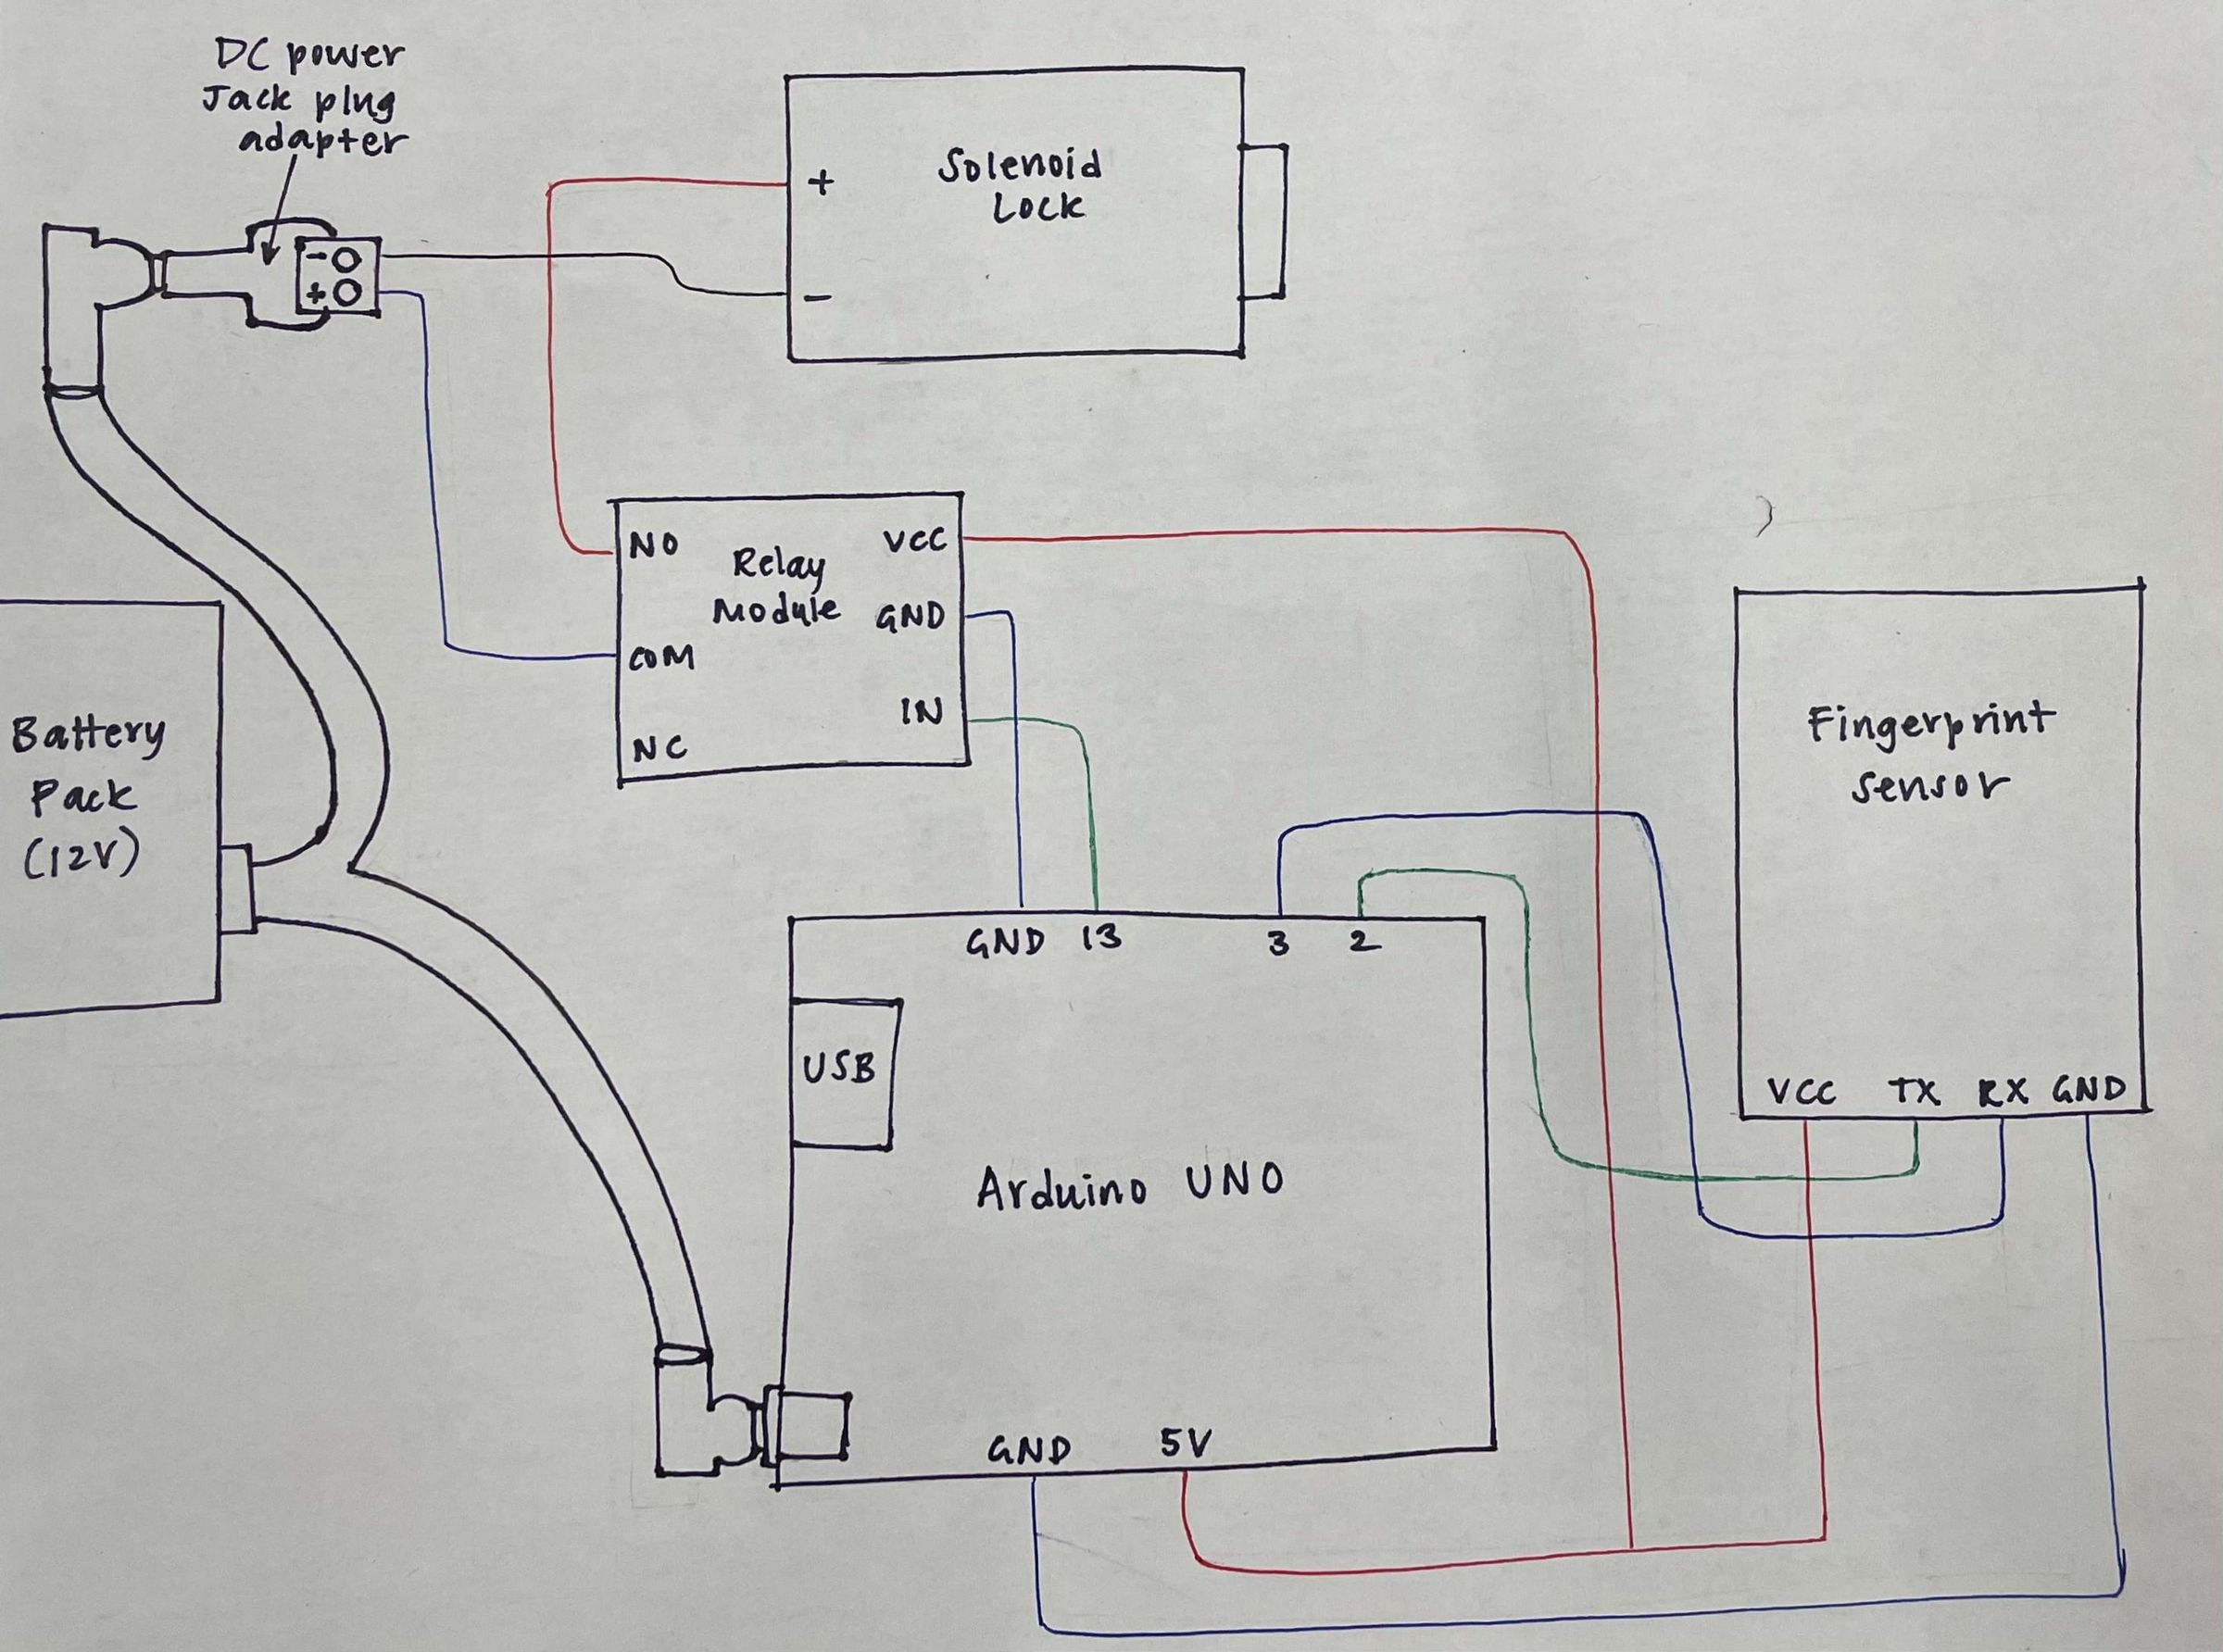 DC power
Jack plug
adapter
-
+
+
Solenoid
Lock
-
NO
Relay
Module
VCC
GND
COM
IN
NC
Battery
Pack
(12V)
Fingerprint
sensor
VCC TX RX GND
GND 13 3 2
USB
Arduino UNO
GND 5V